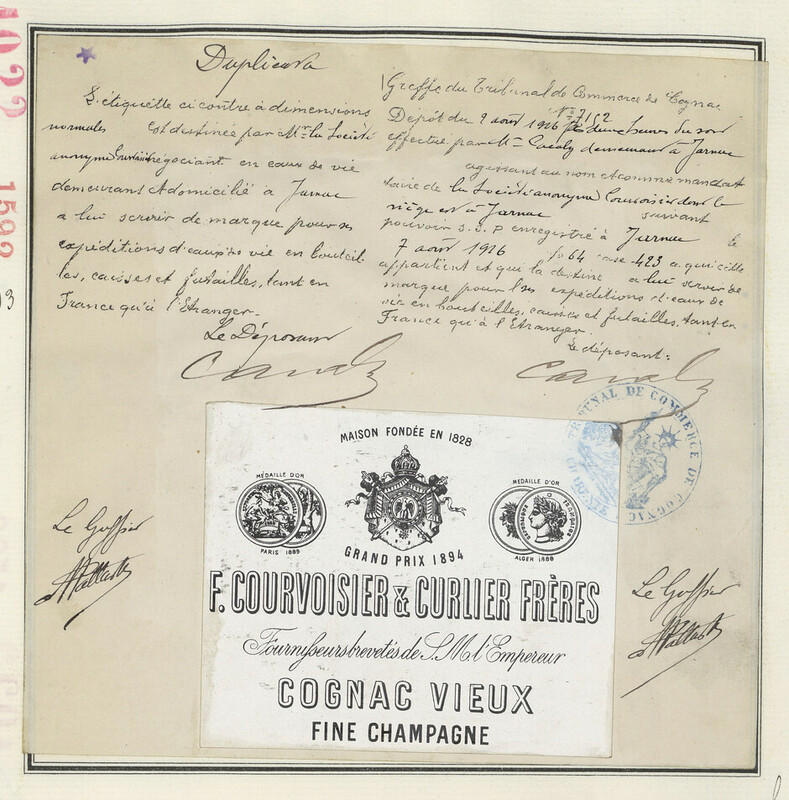 Duplicata
L'étiquette ci contre à dimensions
normales est destinée par Mr la Société
anonyme Courvoisier négociant en eaux de vie
demeurant et domicilié à Jarnac
a lui servir de marque pour ses
expéditions d'eaux de vie en bouteil
les, caisses et futailles, tant en
France qu'à l'Etranger.
Le Déposant
Greffe du Tribunal de Commerce de Cognac
N° 7152
Dépôt du 9 août 1926 à deux heures du soir
effectué par M demeurant à Jarnac
agissant au nom et comme mandat
taire de la Société anonyme Courvoisier dont le
siège est à Jarnac suivant
pouvoir S.S.P enregistré à Jarnac le
7 août 1926 fo 64 case 423 a qui elle
appartient et qui la destine a lui servir de
marque pour ses expéditions d'eaux de
vie en bouteilles, caisses et futailles, tant en
France qu'à l'Etranger.
Le déposant:
TRIBUNAL DE COMMERCE DE COGNAC
MAISON FONDÉE EN 1828
MÉDAILLE D'OR
PARIS 1889
GRAND PRIX 1894
MÉDAILLE D'OR
ALGER 1888
F. COURVOISIER & CURLIER FRÈRES
Fournisseurs brevetés de S.M. l'Empereur
COGNAC VIEUX
FINE CHAMPAGNE
Le Greffier
Le Greffier